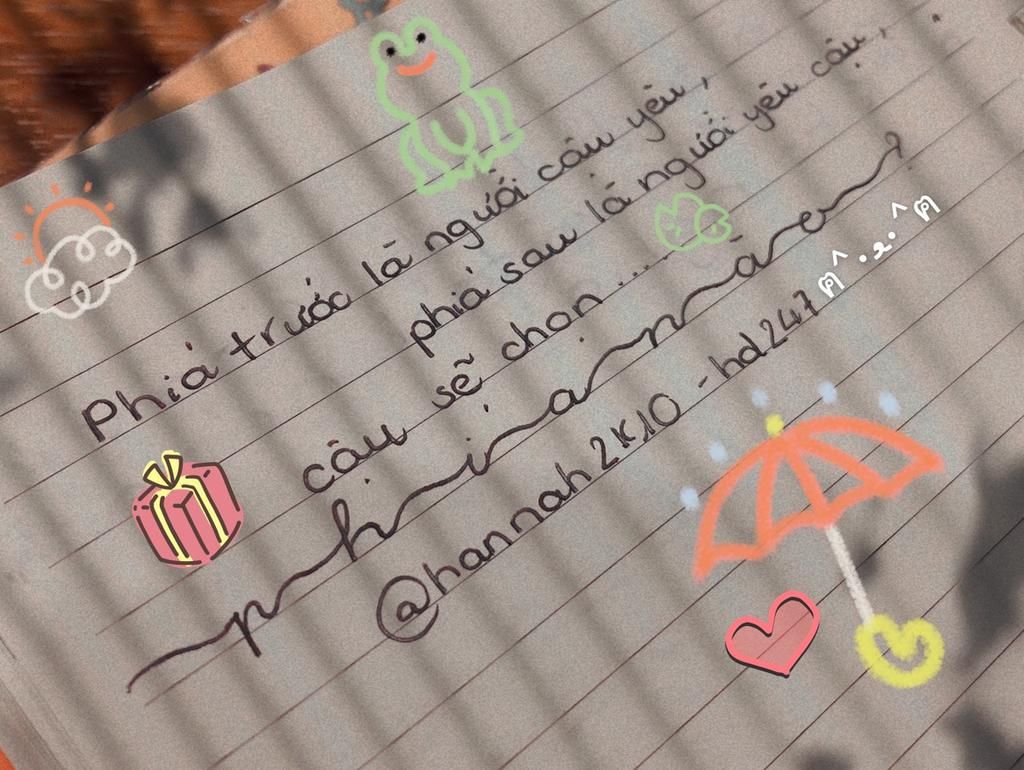 Phía trước là người cậu yêu,
phía sau là người yêu cậu,
cậu sẽ chọn ....
phía nào?
@hannah2k10 -hd247 ฅ^.ﻌ.^ฅ